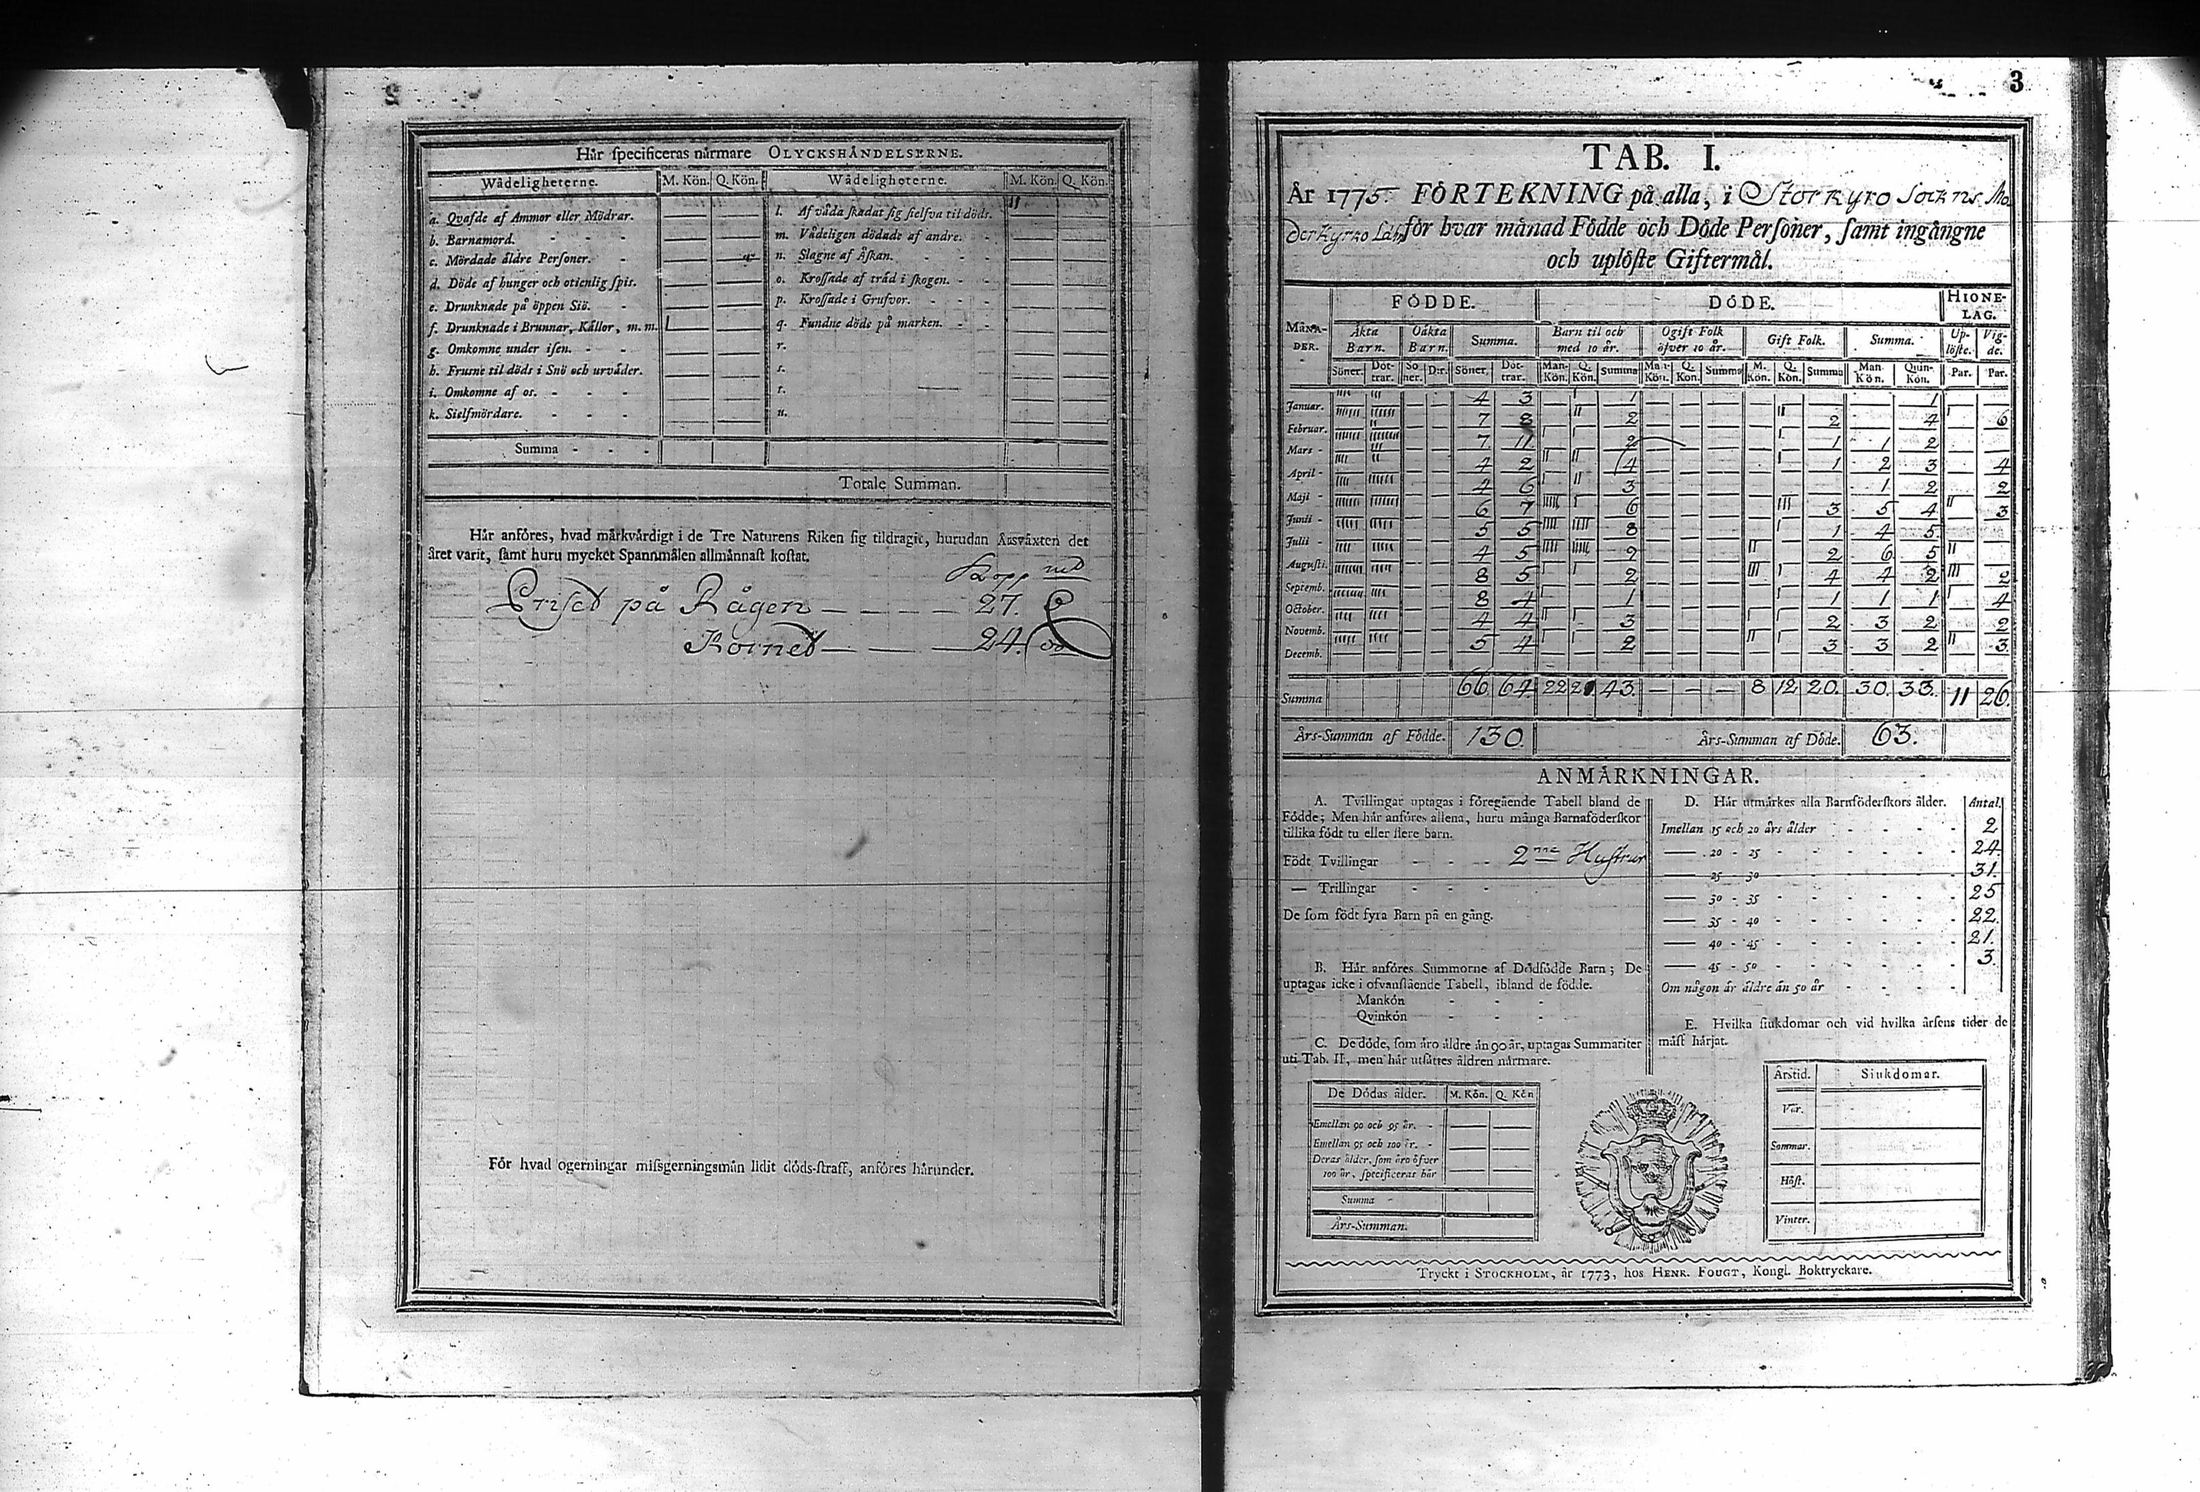 Hår specificeras nårmare OLYCKSHÅNDELSERNE.
Wådeligheterne. M. Kön. Q. Kön. Wådeligheterne. M. Kön. Q. Kön.
a. Qvafde af Ammor eller Mödrar. — — l. Af våda skadat sig sielfva til döds. II —
b. Barnamord. — — m. Vådeligen dödade af andre. — —
c. Mördade åldre Personer. — — n. Slagne af Åskan. — —
d. Döde af hunger och otienlig spis. — — o. Krossade af tråd i skogen. — —
e. Drunknade på öppen Siö. — — p. Krossade i Grufvor. — —
f. Drunknade i Brunnar, Kållor, m. m. I — q. Fundne döde på marken. — —
g. Omkomne under isen. — — r. — —
h. Frusne til döds i Snö och urvåder. — — s. — —
i. Omkomne af os. — — t. — —
k. Sielfmördare. — — u. — —
Summa - - - — —
Totale Summan.
Hår anföres, hvad mårkvårdigt i de Tre Naturens Riken sig tildragit, hurudan Årsvåxten det
året varit, samt huru mycket Spannmålen allmånnast kostat.
Kopp
Priset på Rågen — — — — 27.
Kornet — — — 24.
För hvad ogerningar missgerningsmån lidit döds-straff, anföres hårunder.
3
TAB. I.
År 1775 FÖRTEKNING på alla, i Storkyro Sockns Mo
derkyrko för hvar månad Födde och Döde Personer, samt ingångne
och uplöste Giftermål.
FÖDDE. DÖDE. HIONE-LAG.
MÅNA-DER. Åkta Barn. Oåkta Barn. Summa. Barn til och med 10 år. Ogift Folk öfver 10 år. Gift Folk. Summa. Up-löste. Vig-de.
Söner. Döt-trar. Sö ner. D:r. Söner. Döt-trar. Man-Kön. Q. Kön. Summa Man-Kön. Q. Kön. Summa M. Kön. Q. Kön. Summa Man-Kön. Quin-Kön. Par. Par.
Januar. 4 3 1 1
Februar. 7 8 2 2 4 6
Mars - 7 11 2 1 1 2
April - 4 2 4 1 2 3 4
Maji - 4 6 3 1 2 2
Junii - 6 7 6 3 5 4 3
Julii - 5 5 8 1 4 5
Augusti. 4 5 2 2 6 5
Septemb. 8 5 2 4 4 2 2
October. 8 4 1 1 1 1 4
Novemb. 4 4 3 2 3 2 2
Decemb. 5 4 2 3 3 2 3
Summa 66 64 22 43. — — — 8 12 20. 30. 33. 11 26.
Års-Summan af Födde. 130. Års-Summan af Döde. 63.
ANMÅRKNINGAR.
A. Tvillingar uptagas i föregående Tabell bland de
Födde; Men hår anföres allena, huru många Barnaföderskor
tillika födt tu eller flere barn.
Födt Tvillingar - - - 2ne Hustrur
— Trillingar - - -
De som födt fyra Barn på en gång.
B. Hår anföres Summorne af Dödfödde Barn; De
uptagas icke i ofvanstående Tabell, ibland de födde.
Mankön - - -
Qvinkön - - -
C. De döde, som åro åldre ån 90 år, uptagas Summariter
uti Tab. II, men hår utsåttes åldren nårmare.
De Dödas ålder. M. Kön. Q. Kön
Emellan 90 och 95 år. - — —
Emellan 95 och 100 år. - — —
Deras ålder, som åro öfver
100 år, specificeras hår
Summa -
Års-Summan.
D. Hår utmårkes alla Barnföderskors ålder. Antal.
Imellan 15 och 20 års ålder - - - - 2
— 20 - 25 - - - - 24.
— 25 - 30 - - - - 31.
— 30 - 35 - - - - 25
— 35 - 40 - - - - 22.
— 40 - 45 - - - - 21.
— 45 - 50 - - - - 3.
Om någon år åldre ån 50 år - - - -
E. Hvilka siukdomar och vid hvilka årsens tider de
måst hårjat.
Årstid. Siukdomar.
Vår.
Sommar.
Höst.
Vinter.
Tryckt i STOCKHOLM, år 1773, hos HENR. FOUGT, Kongl. Boktryckare.